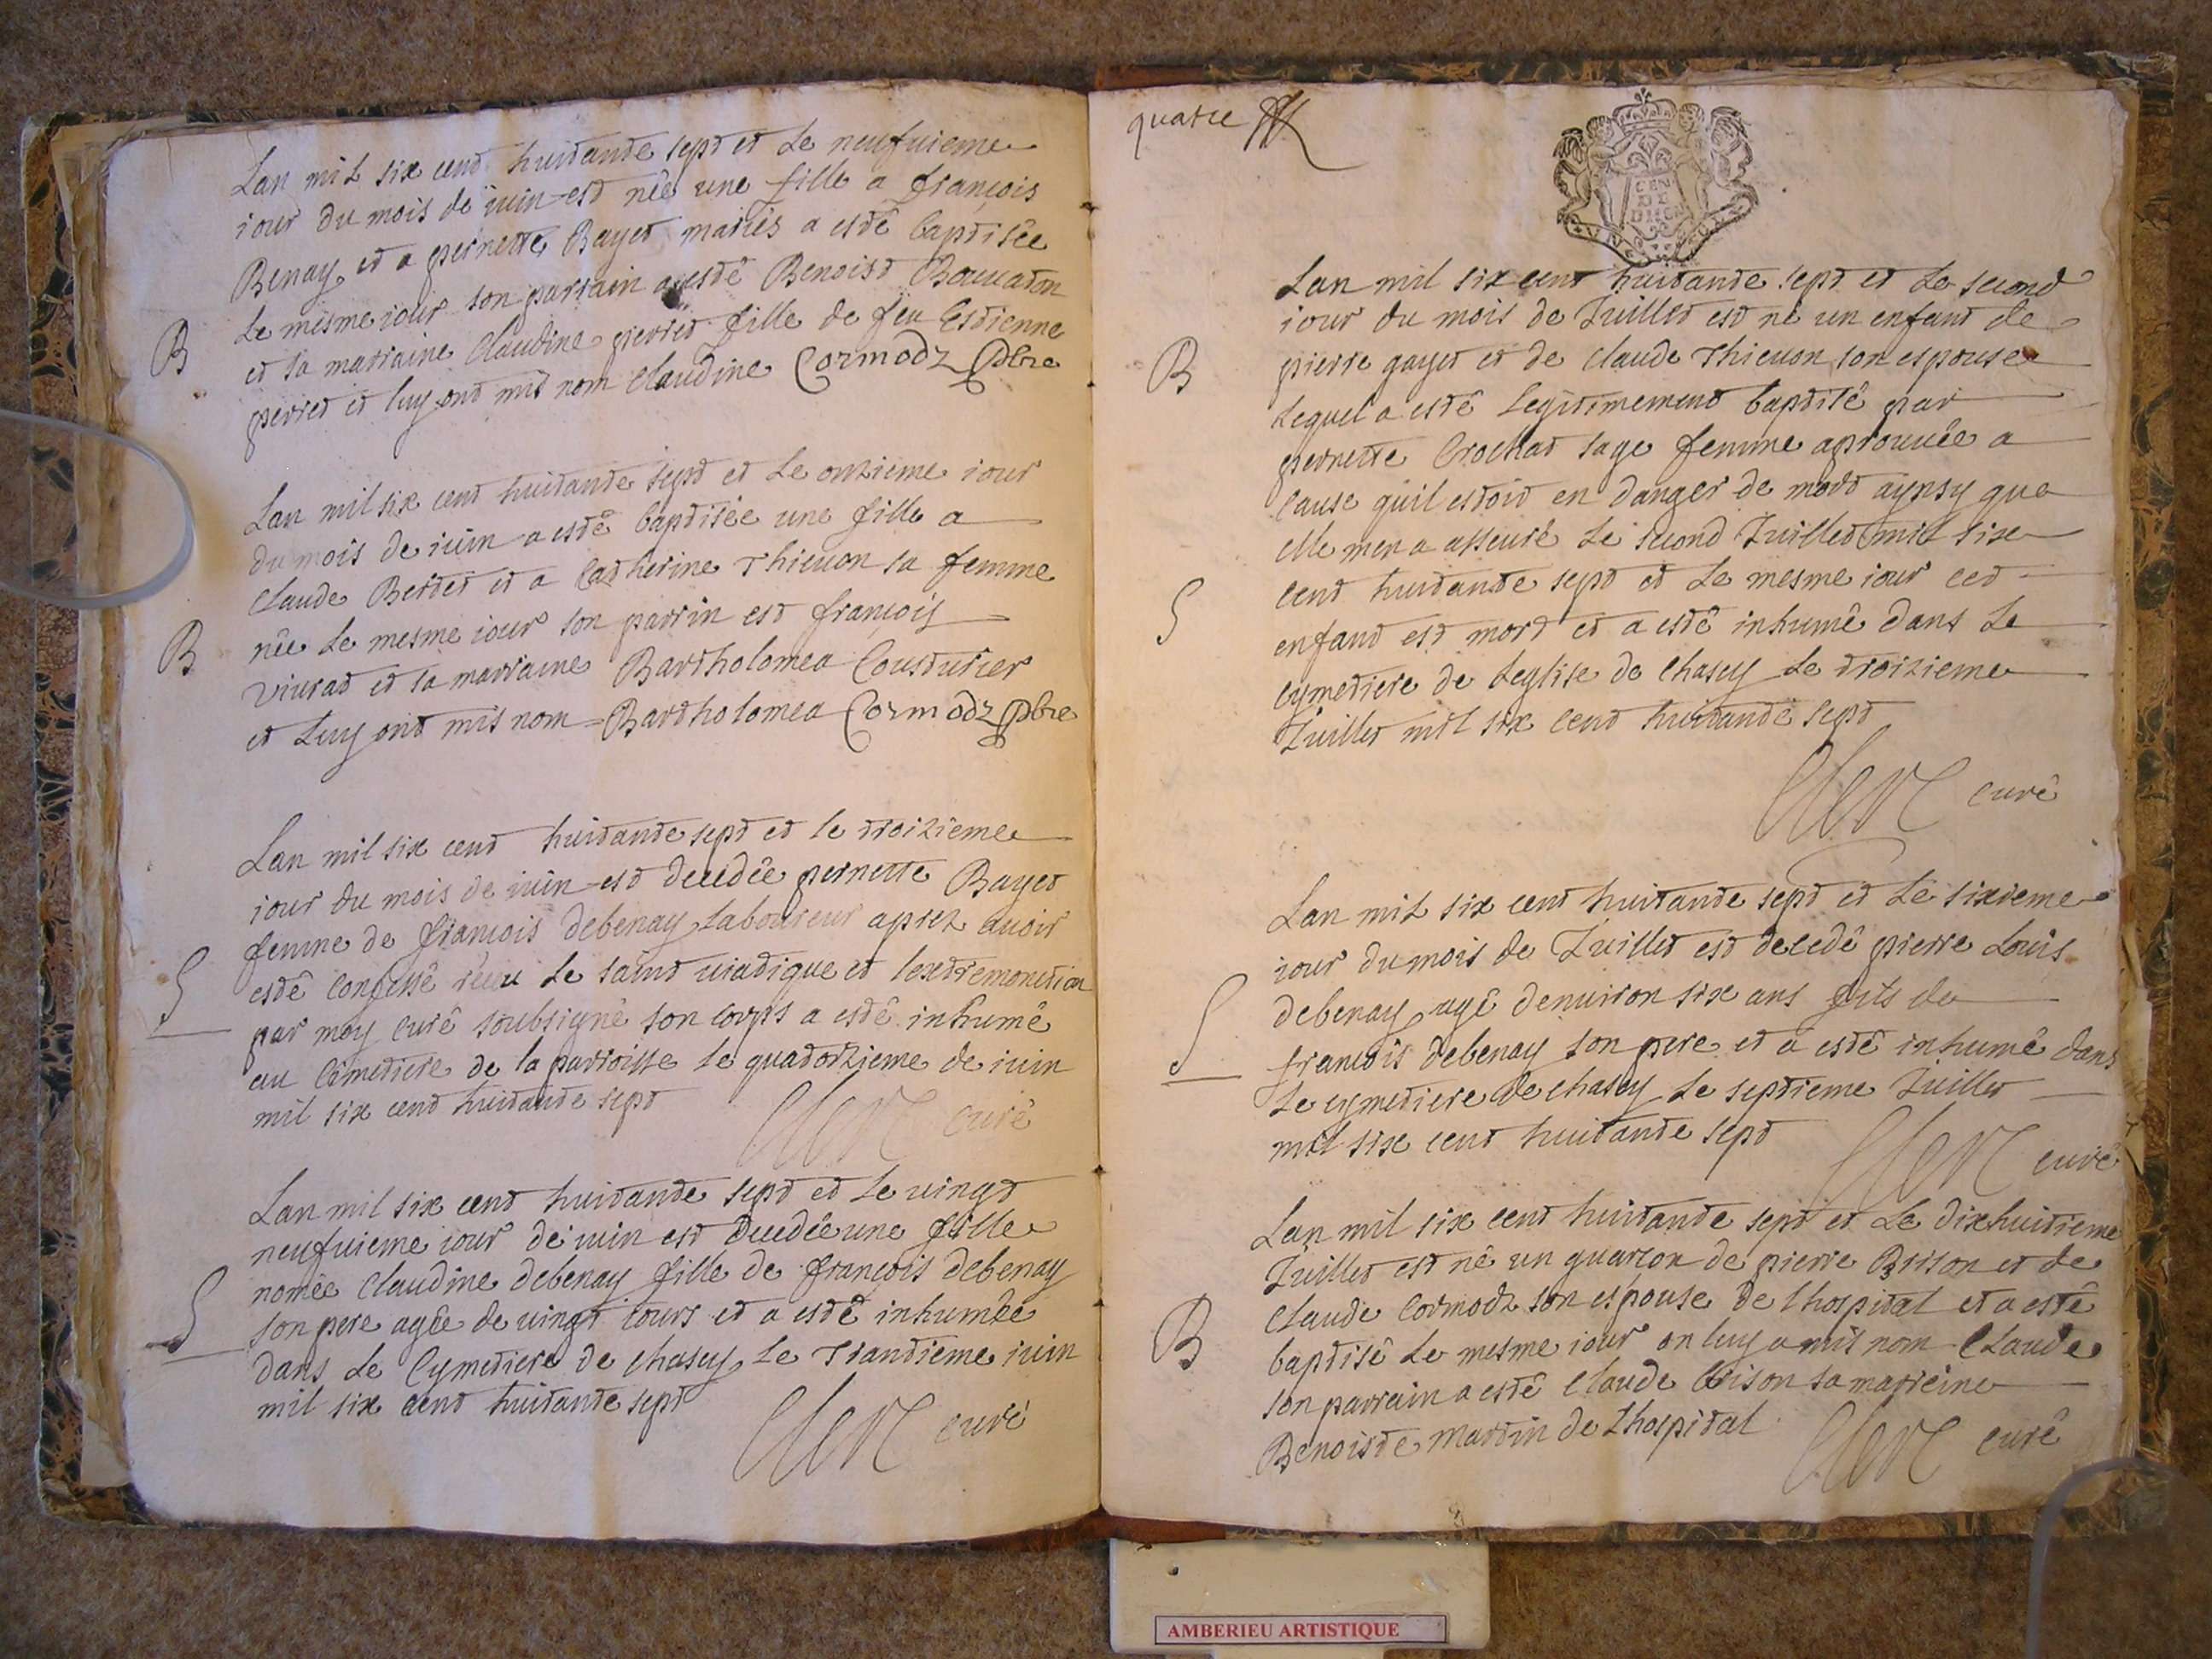 Lan mil six cent huitante sept et Le neufuieme
iour du mois de iuin est née une fille a françois
Benay et a pernette Bayet mariés a esté baptisée
Le mesme iour son parrain a esté Benoist
et sa marraine Claudine perret fille de feu Estienne
B
perret et luy ont mis nom Claudine Cormodz pbre
Lan mil six cent huitante sept et Le onzieme iour
du mois de iuin a esté baptisée une fille a
Claude Bertet et a Catherine Thieuon sa femme
née Le mesme iour son parrin est françois
B
viurat et sa marraine Bartholomea Cousturier
et Luy ont mis nom Bartholomea Cormodz pbre
Lan mil six cent huitante sept et le troizieme
iour du mois de iuin est decedée pernette Bayet
femme de françois debenay Laboureur aprez auoir
esté confessé receu Le saint uiatique et lextremonction
S
par moy curé soubsigné son corps a esté inhumé
au Cimetiere de la parroisse Le quatorzieme de iuin
mil six cent huitante sept
Clerc curé
Lan mil six cent huitante sept et Le uingt
neufuieme iour de iuin est decedée une fille
nomée Claudine debenay fille de françois debenay
S
son pere agée de uingt iours et a esté inhumée
dans Le Cymetiere de chasey Le Trantieme iuin
mil six cent huitante sept
Clerc curé
quatre
GEN
DE
DIION
Lan mil six cent huitante sept et Le second
iour du mois de Iuillet est né un enfant de
pierre gayet et de Claude Thieuon son espouse
B
Lequel a esté Legitimement baptisé par
pernette Crochat sage femme aprouuée a
Cause quil estoit en danger de mort aynsy que
elle men a asseuré Le second Iuillet mil six
cent huitante sept et Le mesme iour cet
S
enfant est mort et a esté inhumé dans Le
cymetiere de Leglise de Chasey Le troizieme
Iuillet mil six cent huitante sept
Clerc curé
Lan mil six cent huitante sept et Le sixieme
iour du mois de Iuillet est decedé pierre Louis
debenay agé denuiron six ans fils de
S
francois debenay son pere et a esté inhumé dans
Le cymetiere de chasey Le septieme Iuillet
mil six cent huitante sept
Clerc curé
Lan mil six cent huitante sept et Le dixhuitieme
Iuillet est né un guarçon de pierre Brison et de
Claude Cormodz son espouse de lhospital et a esté
B
baptisé Le mesme iour on luy a mis nom Claude
son parrain a esté Claude brison sa marreine
Benoiste martin de Lhospital
Clerc curé
AMBERIEU ARTISTIQUE